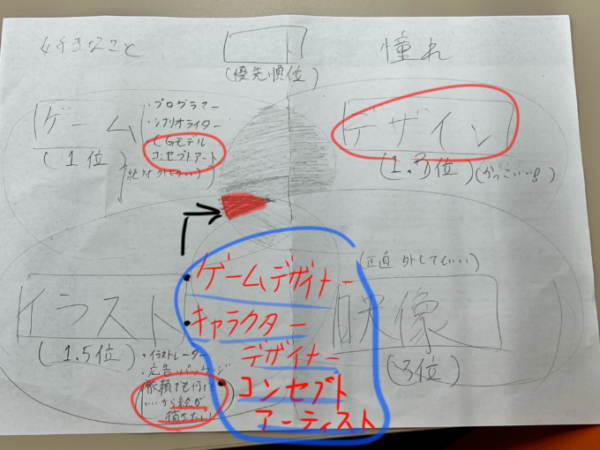 好きなこと
憧れ
(優先順位)
ゲーム
(1位)
・プログラマー
・シナリオライター
・CGモデル
コンセプトアート
デザイン
(1.3位)
(かっこいい!)
イラスト
(1.5位)
・イラストレーター
・広告・パッケージ
依頼でも何でも
いいから絵が
描きたい
・ゲームデザイナー
・キャラクター
デザイナー
・コンセプト
アーティスト
(正直外してもいい)
映像
(3位)